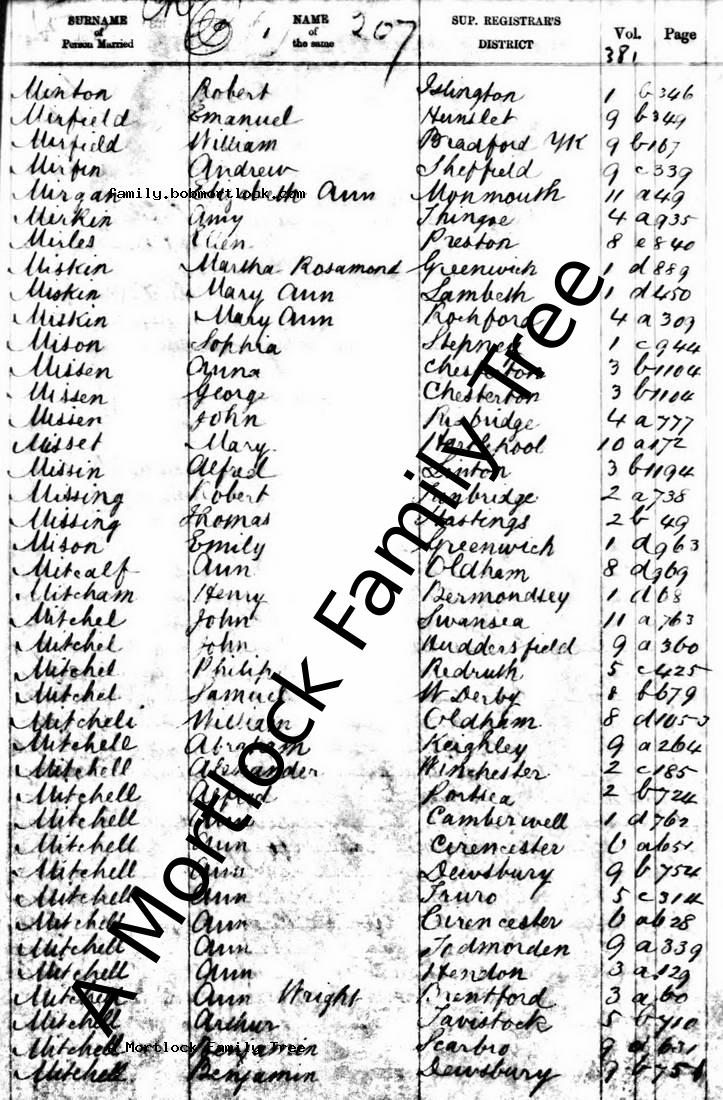 SURNAME of Person Married NAME of the same 207 SUP. REGISTRAR'S DISTRICT Vol. Page
381
Minton Robert Islington 1 b 346
Mirfield Emanuel Hunslet 9 b 349
Mirfield William Bradford YK 9 b 167
Mirfin Andrew Sheffield 9 c 339
Mirgan Elizabeth Ann Monmouth 11 a 49
family.bobmortlock.com
Mirkin Amy Thingoe 4 a 935
Mirles Ellen Preston 8 e 840
Miskin Martha Rosamond Greenwich 1 d 889
Miskin Mary Ann Lambeth 1 d 450
Miskin Mary Ann Rochford 4 a 309
Mison Sophia Stepney 1 c 944
Missen Anna Chesterton 3 b 1104
Missen George Chesterton 3 b 1104
Missen John Risbridge 4 a 777
Misset Mary Hartlepool 10 a 172
Missin Alfred Linton 3 b 1194
Missing Robert Tunbridge 2 a 738
Missing Thomas Hastings 2 b 49
Mison Emily Greenwich 1 d 963
Mitcalf Ann Oldham 8 d 969
Mitcham Henry Bermondsey 1 d 68
Mitchel John Swansea 11 a 763
Mitchel John Huddersfield 9 a 360
Mitchel Philip Redruth 5 c 425
Mitchel Samuel W Derby 8 b 679
Mitcheli William Oldham 8 d 1053
Mitchell Abraham Keighley 9 a 264
Mitchell Alexander Winchester 2 c 185
Mitchell Alfred Portsea 2 b 724
Mitchell Camberwell 1 d 762
Mitchell Ann Cirencester 6 a 651
Mitchell Ann Dewsbury 9 b 754
Mitchell Ann Truro 5 c 314
Mitchell Ann Cirencester 6 a 628
Mitchell Ann Todmorden 9 a 339
Mitchell Ann Hendon 3 a 129
Mitchell Ann Wright Brentford 3 a 60
Mitchell Arthur Tavistock 5 b 710
Mitchell Benjamin Scarbro 9 d 631
Mortlock Family Tree
Mitchell Benjamin Dewsbury 9 b 751
A Mortlock Family Tree